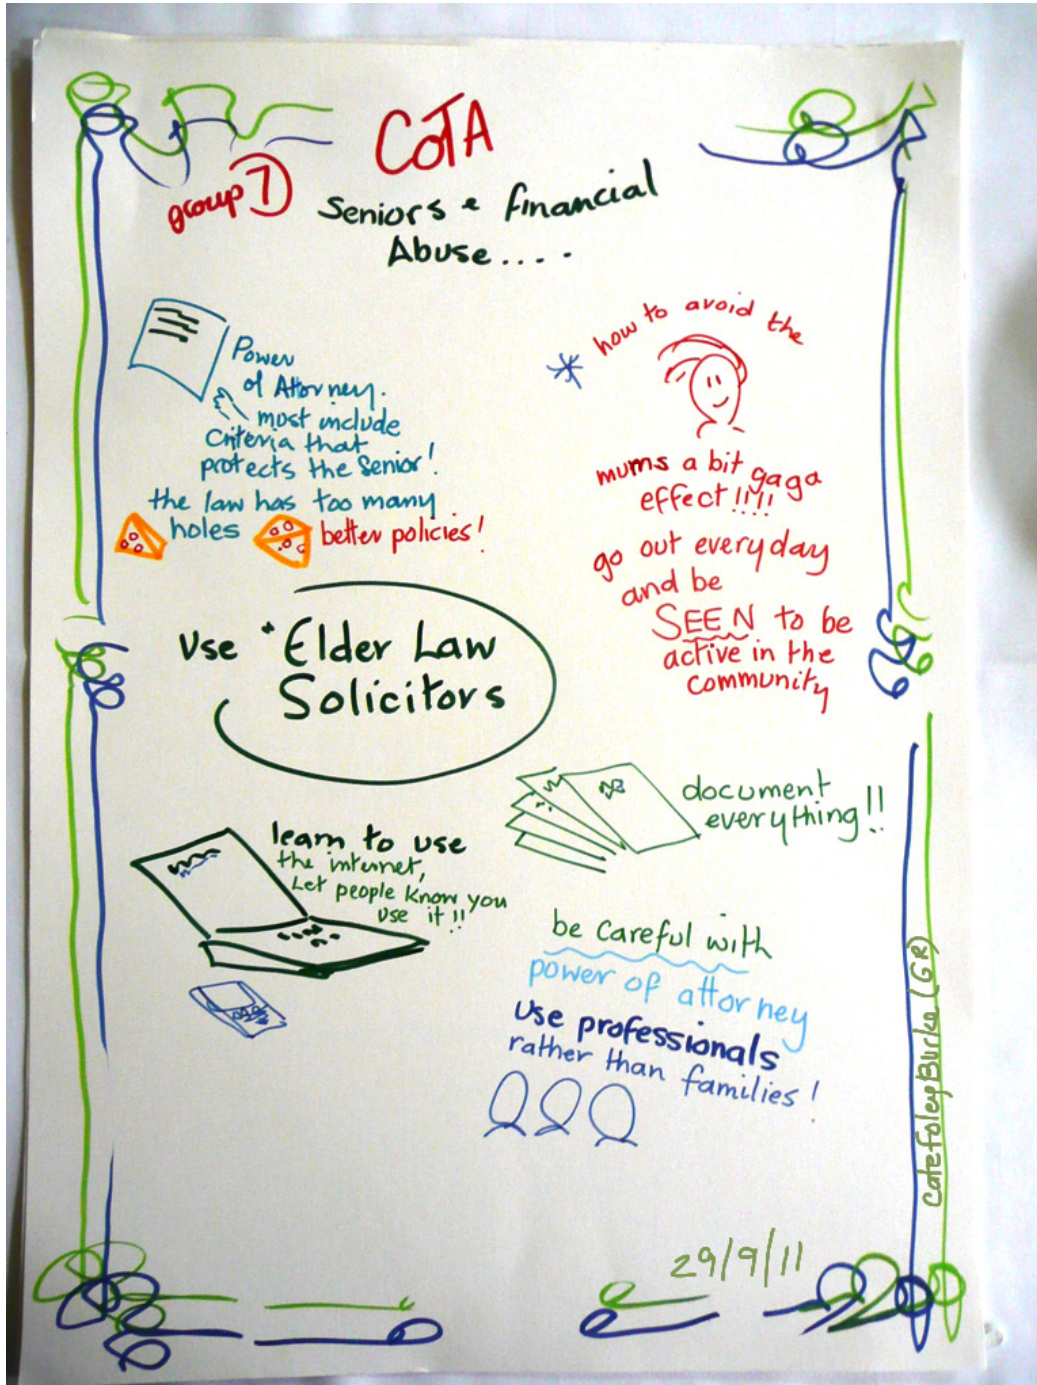 COTA
group 7
Seniors & financial
Abuse....
Power
of Attorney.
must include
criteria that
protects the Senior!
the law has too many
holes
better policies!
* how to avoid the
mums a bit gaga
effect!!!!
go out everyday
and be
SEEN to be
active in the
community
Use * Elder Law
Solicitors
document
everything!!
learn to use
the internet,
Let people know you
use it!!
be careful with
power of attorney
use professionals
rather than families!
CateFoleyBurke (GR)
29/9/11